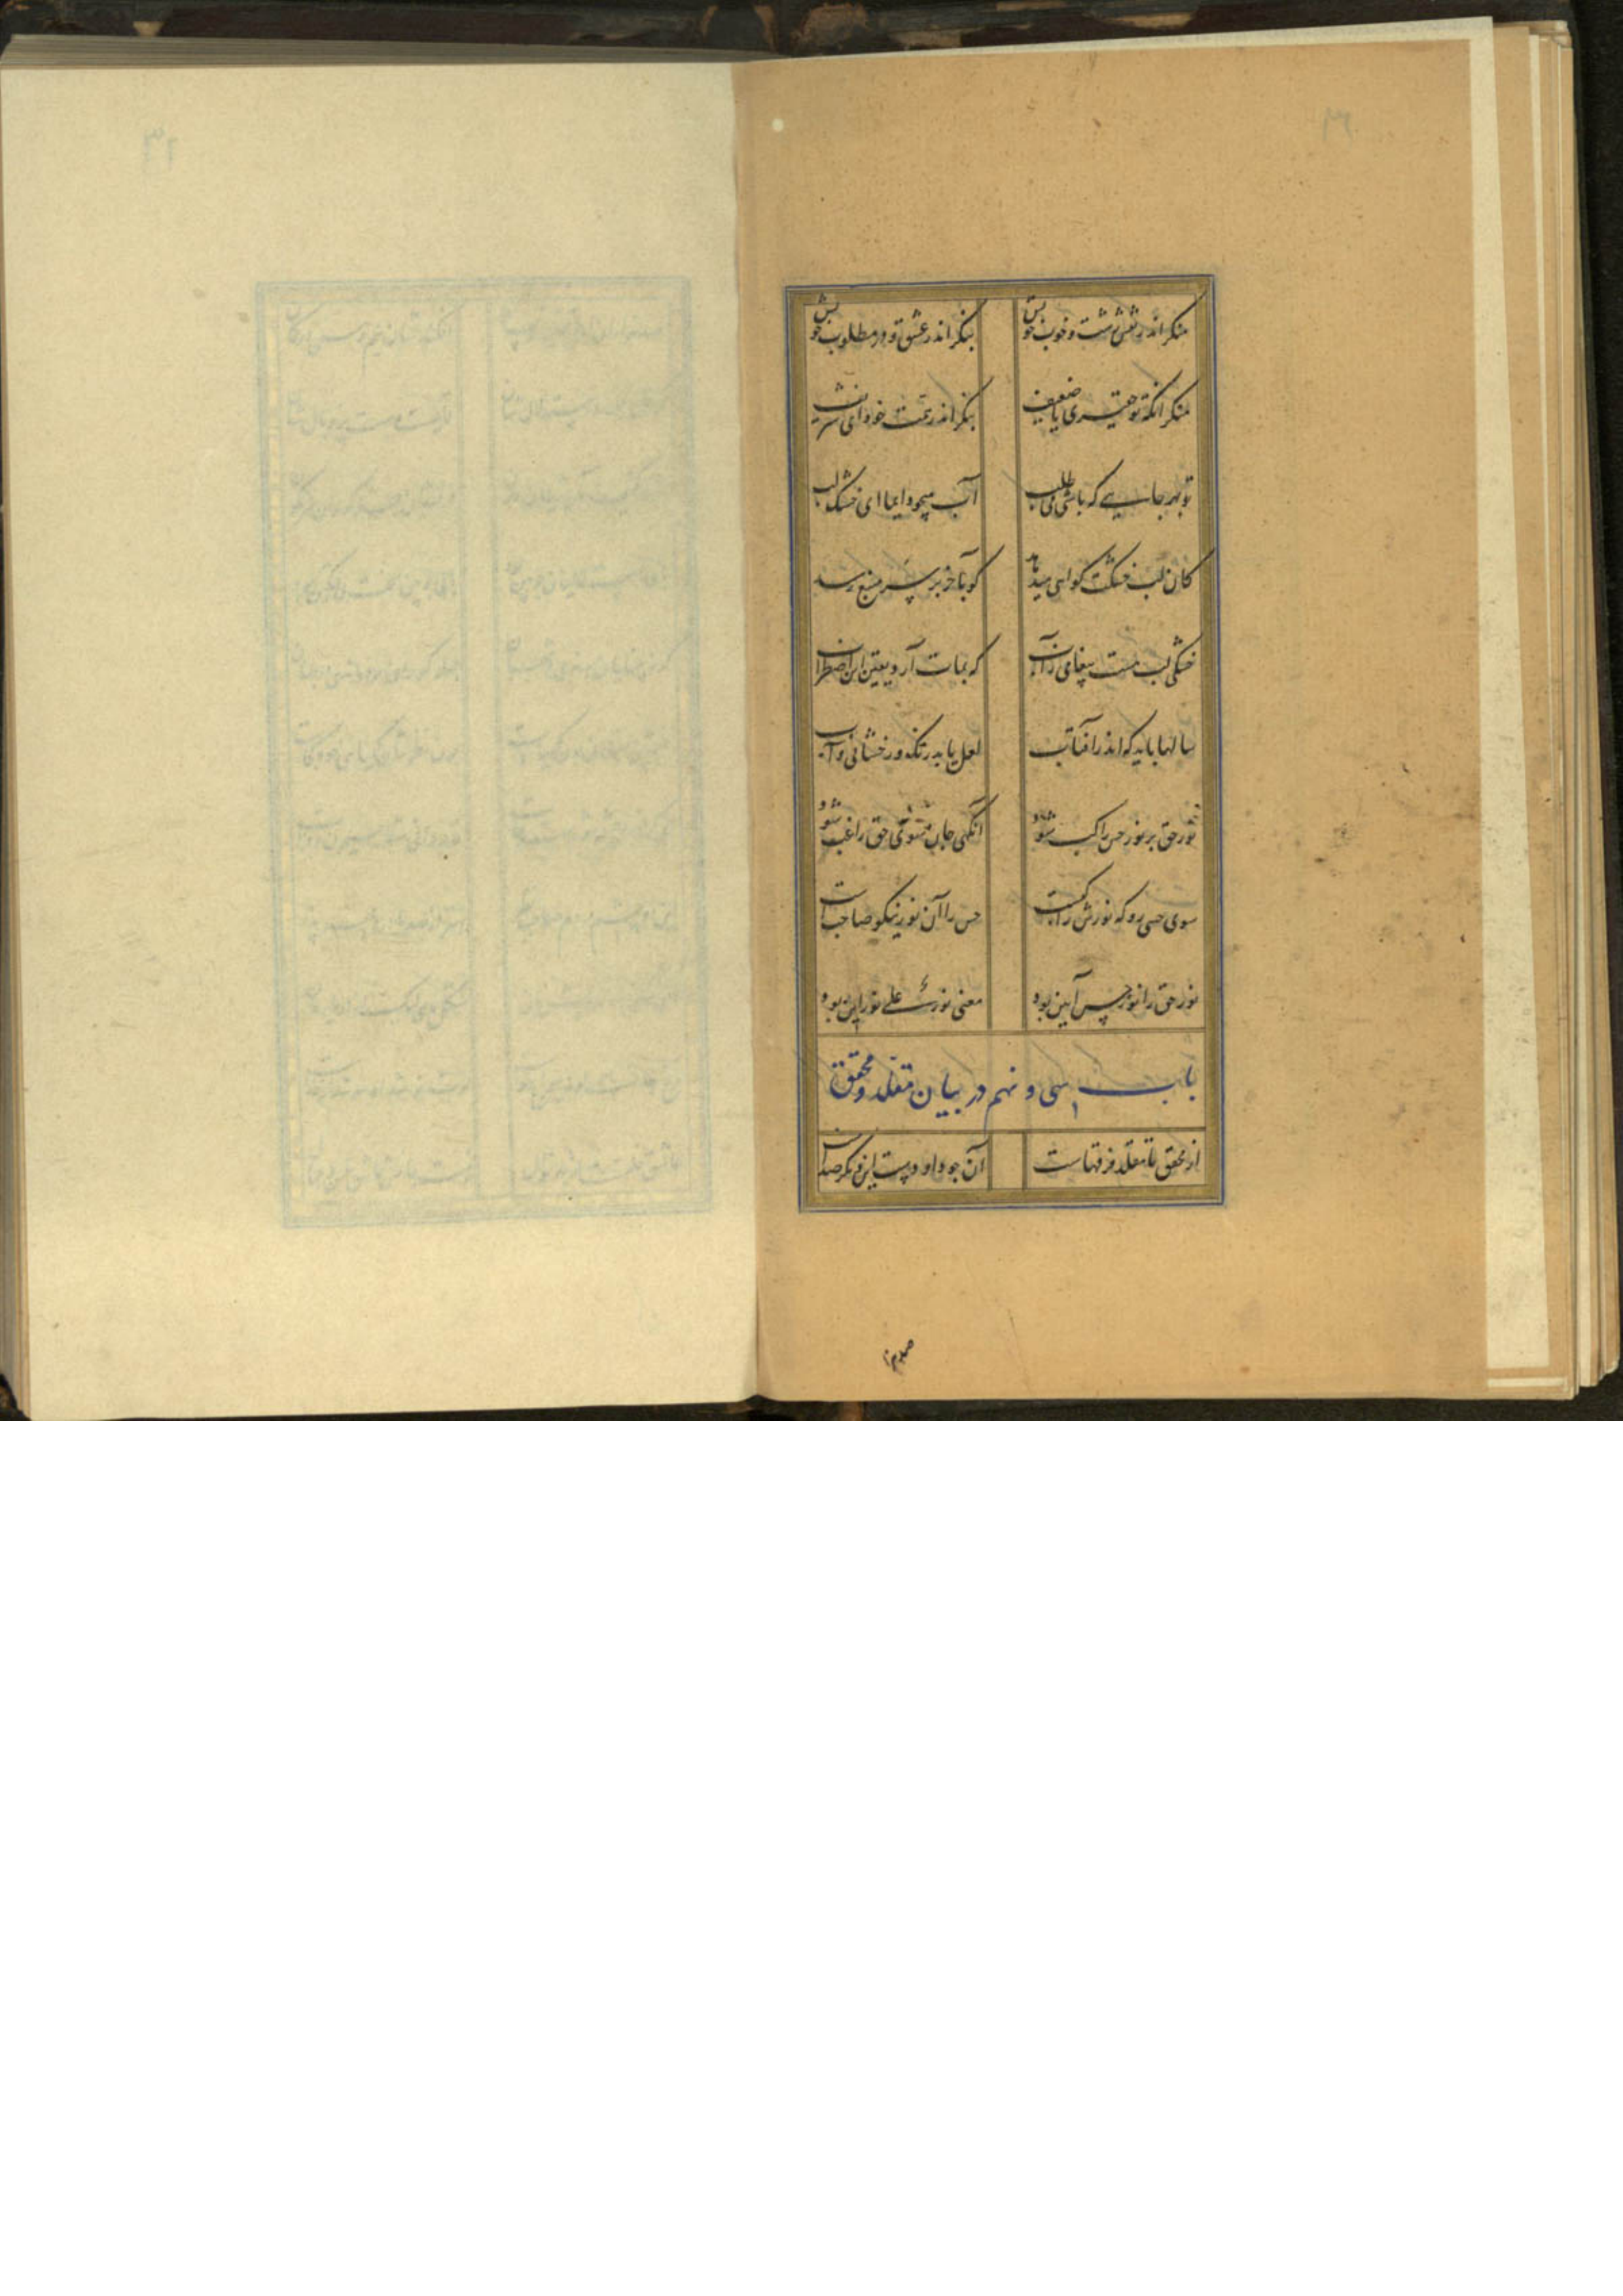 منکر اندر نقش زشت و خوب خویش بنکر اندر عشق و در مطلوب خویش
منکر آنکه تو حقیری یا ضعیف بنکر اندر همت خود ای شریف
تو بهر جایی که باشی می طلب آب میجو دایما ای خشک لب
کان لب خشکت کواهی میدهد کو بآخر بر سر منبع رسد
خشکی لب هست پیغامی ز آب که بمات آرد یقین این اضطراب
سالها باید که اندر آفتاب لعل یابد رنک و رخشانی و آب
نور حق بر نور حس راکب شود آنکهی جان سوی حق راغب شود
سوی حسی رو که نورش راکبست حس را آن نور نیکو صاحب است
نور حق را نور حس آیین بود معنی نور علی نور این بود
باب سی و نهم در بیان مقلد و محقق
از محقق تا مقلد فرقهاست آن چو داود است این دیگر صداست